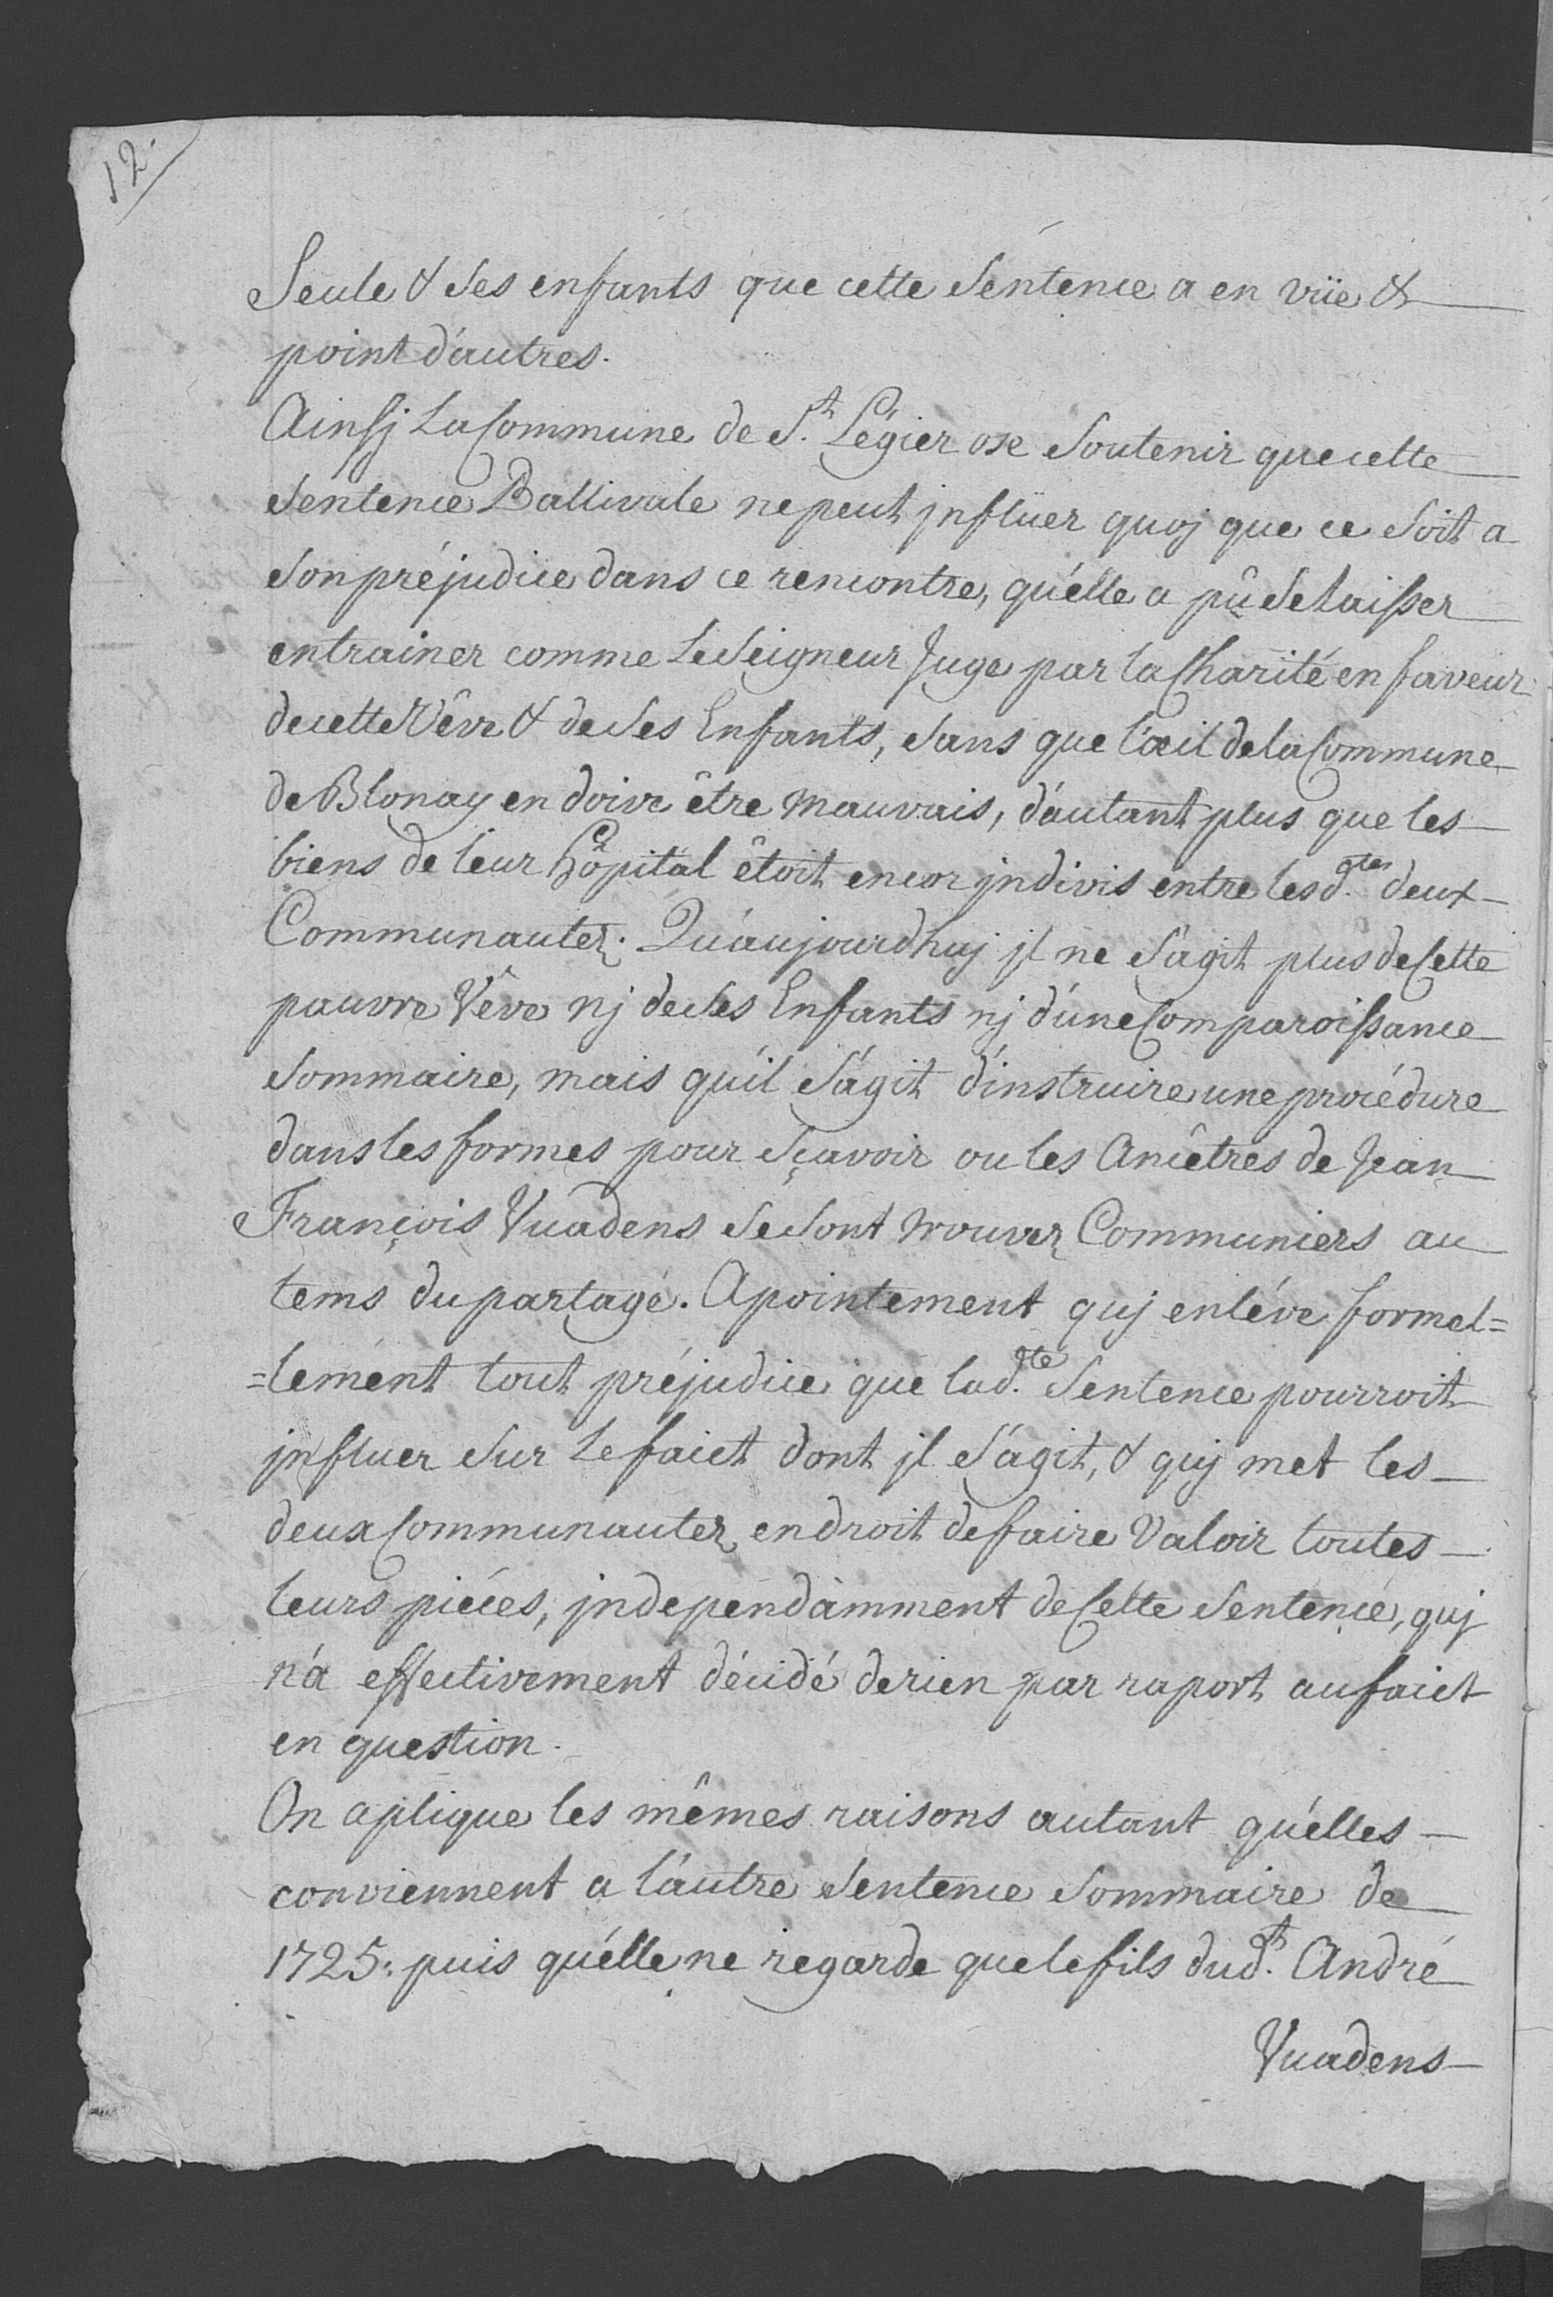 12.
Seule & ses enfants que cette sentence a en vüe &
point d'autres.
Ainsj La Commune de S.t Légier ose soutenir que cette
sentence Ballivale ne peut jnflüer quoj que ce soit a
son préjudice dans ce rencontre, qu'elle a pû se laisser
entrainer comme Le Seigneur Juge par la Charité en faveur
de cette Vêve & de ses Enfants, sans que l'œil de la Commune
de Blonay en doive être mauvais, d'autant plus que les
biens de leur hôpital êtoit encor jndivis entre lesd.tes deux
Communautez. Qu'aujourdhuj jl ne s'agit plus de Cette
pauvre Vêve nj de ses Enfants nj d'une Comparoissance
sommaire, mais qu'il s'agit d'instruire une procédure
dans les formes pour sçavoir ou les Ancêtres de Jean
François Vuadens se sont trouvez Communiers au
tems du partage. Apointement quj enléve formel=
=lement tout préjudice que lad.te Sentence pourroit
jnfluer sur Le faict dont jl s'agit, & quj met les
deux Communautez en droit de faire Valoir toutes
leurs piéces, jndependamment de Cette sentence, quj
n'a effectivement décidé de rien par raport au faict
en question.
On aplique les mêmes raisons autant qu'elles
conviennent a l'autre sentence sommaire de
1725: puis qu'elle ne regarde que le fils dud.t André
Vuadens